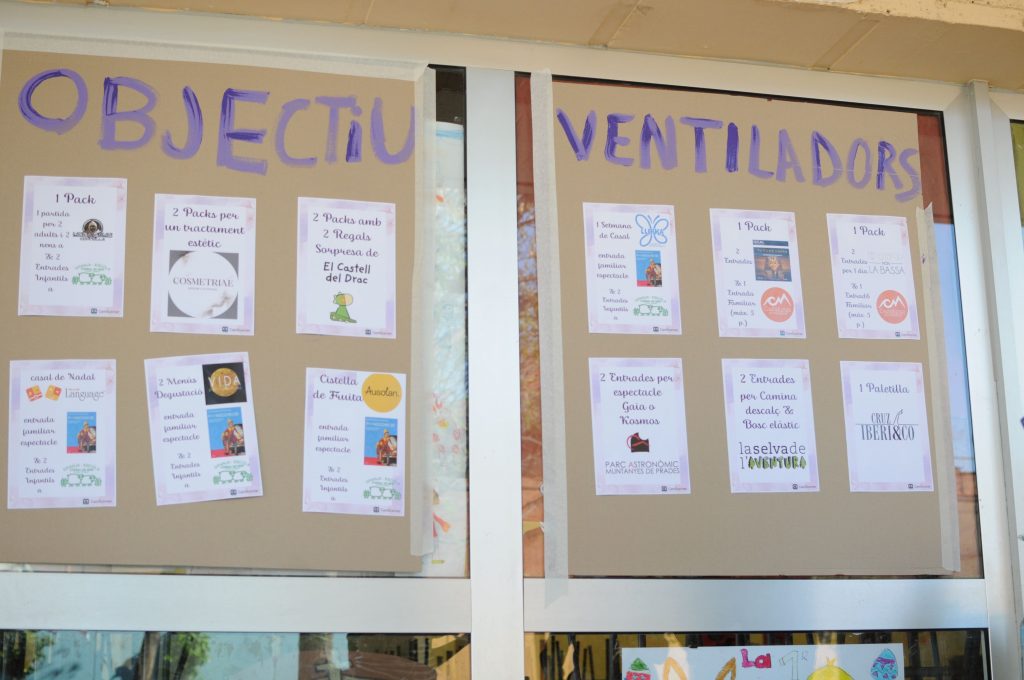 OBJECTiU
VENTILADORS
1 Pack
1 partida
per 2
adults i 2
nens a
& 2
Entrades
Infantils
a
2 Packs per
un tractament
estètic
COSMETRIAE
2 Packs amb
2 Regals
Sorpresa de
El Castell
del Drac
casal de Nadal
Language
entrada
familiar
espectacle
& 2
Entrades
Infantils
a
2 Menús
Degustació
VIDA
entrada
familiar
espectacle
& 2
Entrades
Infantils
a
Cistella
de Fruita
Ausolan
entrada
familiar
espectacle
& 2
Entrades
Infantils
a
1 Setmana
de Casal
entrada
familiar
espectacle
& 2
Entrades
Infantils
1 Pack
2
Entrades
& 1
Entrada
Familiar
(màx. 5
p.)
1 Pack
2
Entrades
per 1 dia
LA BASSA
& 1
Entrada
Familiar
(màx. 5
p.)
2 Entrades per
espectacle
Gaia o
Kosmos
PARC ASTRONÒMIC
MUNTANYES DE PRADES
2 Entrades
per Camina
descalç &
Bosc elàstic
laselvade
l'AVENTURA
1 Paletilla
CRUZ
IBERI&CO
La 1